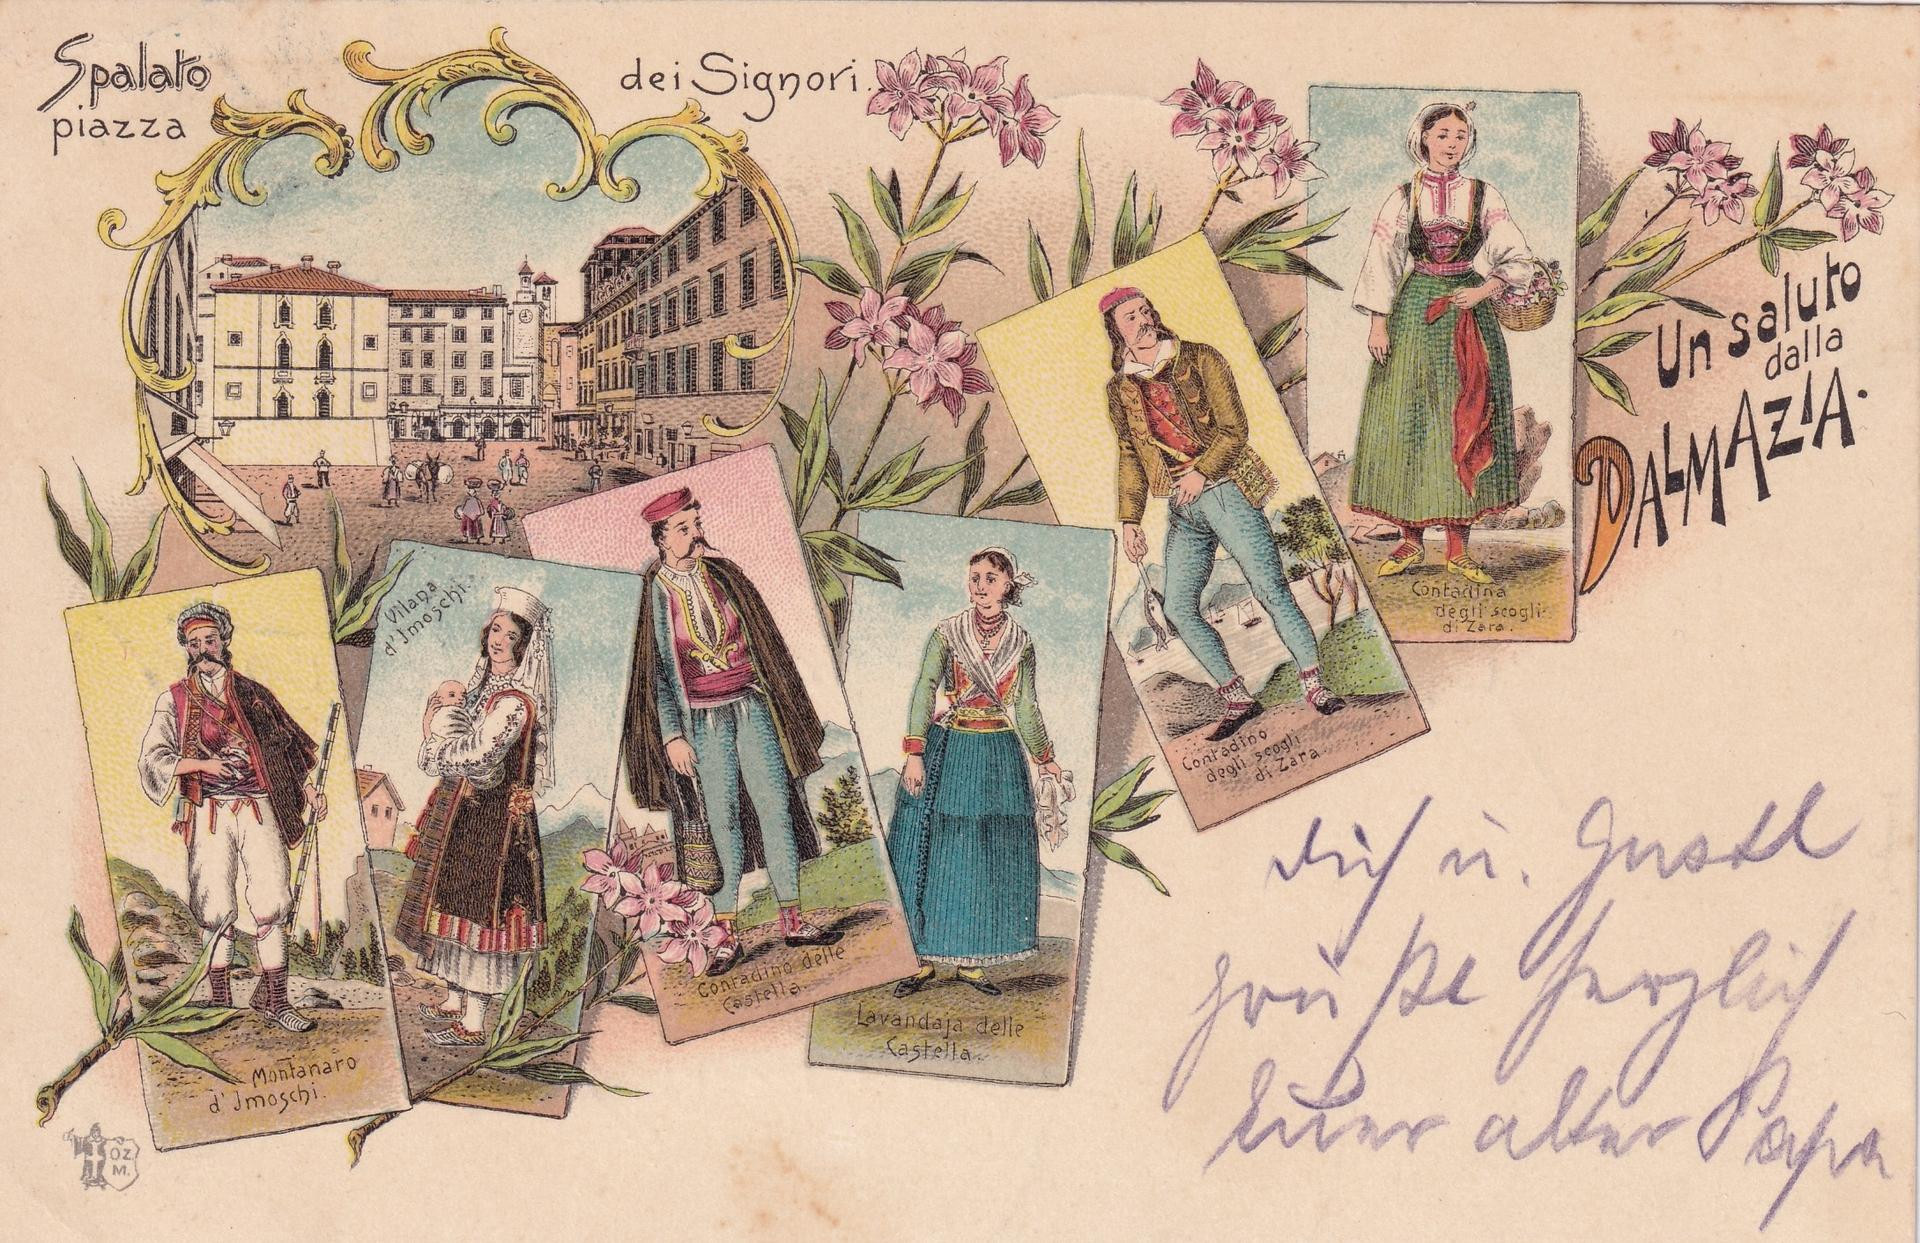 Spalato
piazza
dei Signori.
Un saluto
dalla
DALMAZIA.
Contadina
degli scogli
di Zara.
Contadino
degli scogli
di Zara.
Vilana
d'Imoschi.
Contadino delle
Castella.
Lavandaja delle
Castella.
Montanaro
d'Imoschi.
OZ.
M.
Dich u. Gustl
grüßt herzlich
Euer alter Papa